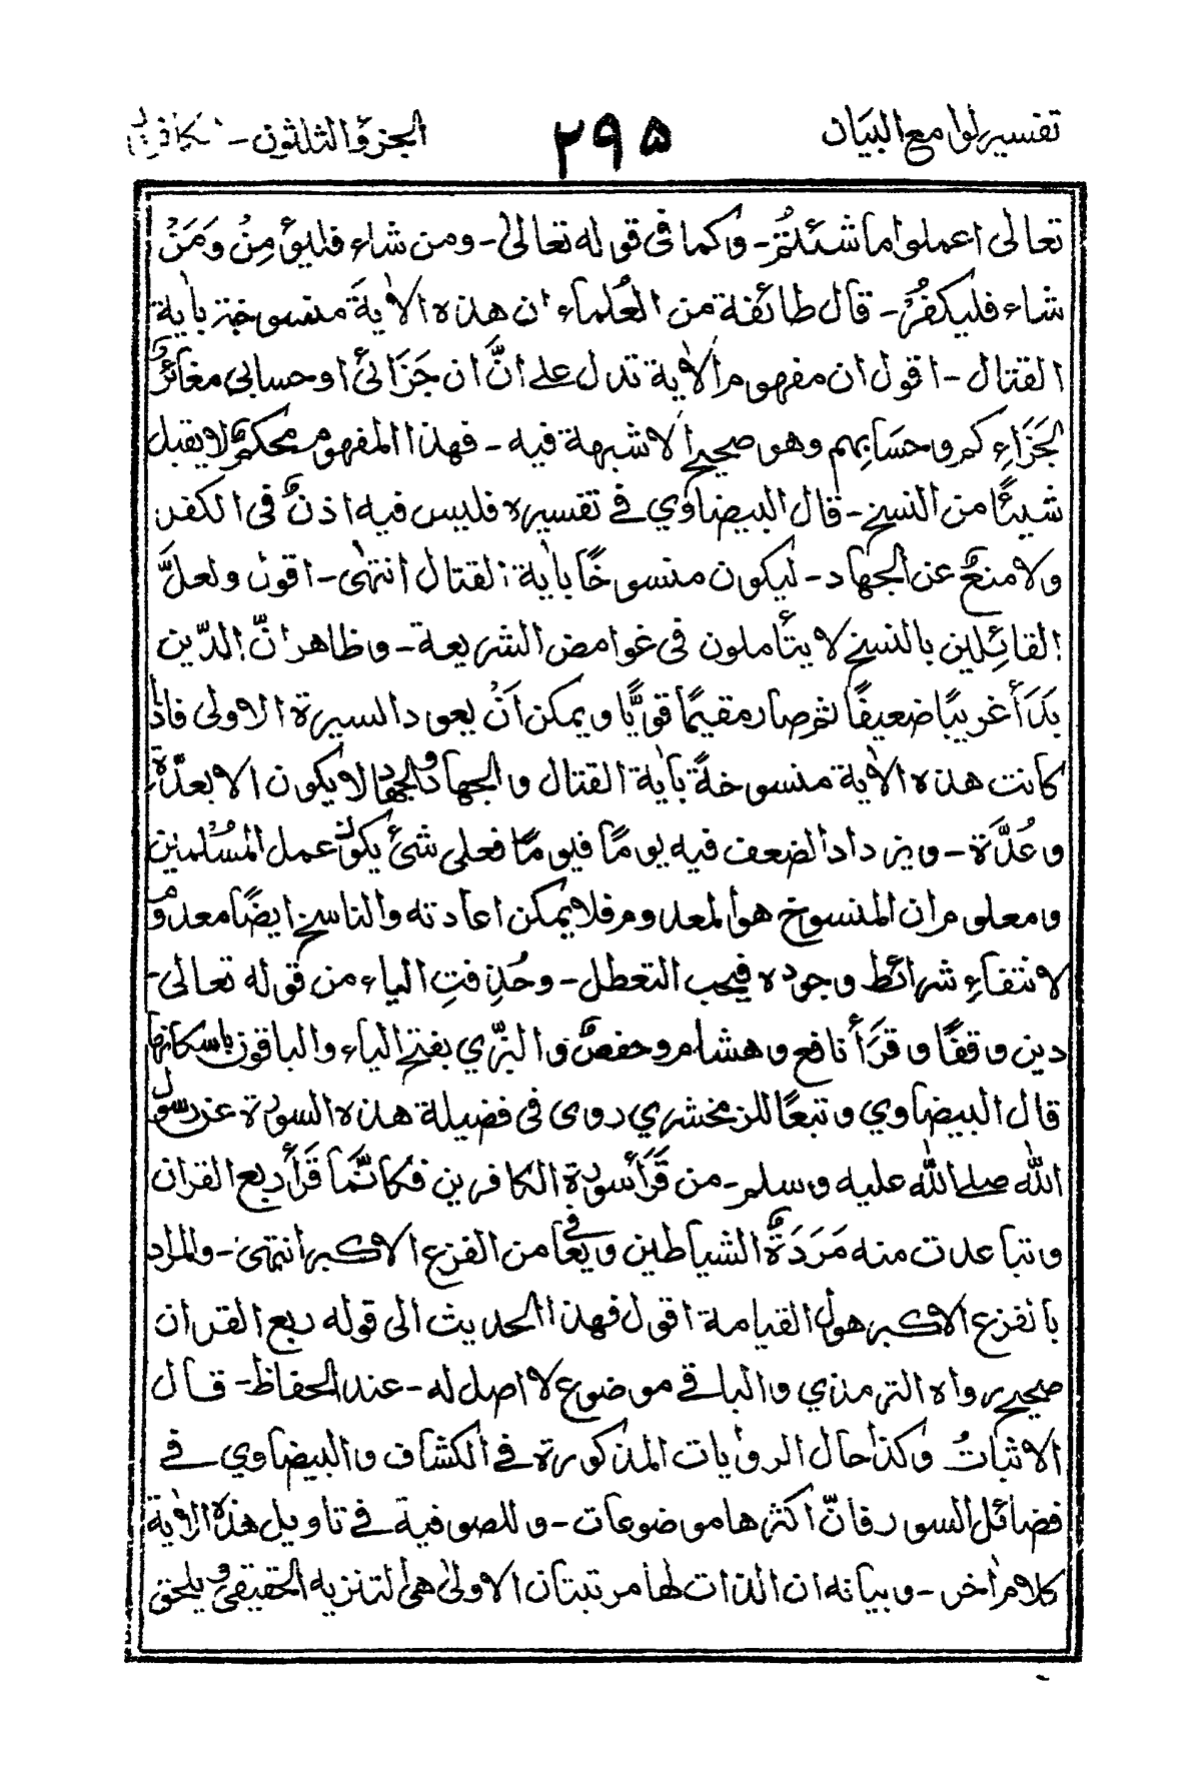 تفسير لوامع البيان ٢٩٥ الجزؤ الثلثون -
تعالى اعملوا ما شئتُم - وكما فى قوله تعالىٰ - ومن شاء فليؤمِنْ وَمَنْ
شاء فليكفُرْ - قال طائفة من العُلماء ان هذه الاٰيةَ منسوخة باٰية
القتال - اقول ان مفهوم الاٰية تدل على انَّ ان جَزَائى او حسابى مغائرٌ
لجَزَاءِ كم وحسَابِهم وهو صحيح لا شبهة فيه - فهذا المفهوم محكمٌ لا يقبل
شيئًا من النسخ - قال البيضاوي فى تفسيره فليس فيه اذنٌ فى الكفر
ولا منعٌ عن الجهاد - ليكون منسوخًا باٰية القتال انتهىٰ - اقول ولعلَّ
القائلين بالنسخ لا يتأملون فى غوامض الشريعة - وظاهر انّ الدّين
بَدَأَ غريبًا ضعيفًا ثم صار مقيمًا قويًّا ويمكن اَنْ يعود السيرة الاولى فاذا
كانت هذه الاٰية منسوخةً باٰية القتال والجهاد والجهاد لا يكون الا بعدّة
وعُدَّة - ويزداد الضعف فيه يومًا فيومًا فعلى شئ يكون عمل المُسْلمين
ومعلوم ان المنسوخ هو المعدوم فلا يمكن اعادته والناسخ ايضًا معدومٌ
لانتفاءِ شرائط وجوده فيجب التعطل - وحُذِفتِ الياء من قوله تعالى -
دين وقفًا وقَرَأَ نافع وهشام وحفصٌ والبزّي بفتح الياء والباقون باسكانها
قال البيضاوي وتبعًا للزمخشري روى فى فضيلة هذه السورة عن رسول
الله صلى الله عليه وسلم - من قَرَأَ سورة الكافرين فكانَّمَا قَرَأَ ربع القران
وتباعدت منه مَرَدَةُ الشياطين ويعافى من الفزع الاكبر انتهىٰ - والمراد
بالفزع الاكبر هول القيامة اقول فهذا الحديث الى قوله ربع القران
صحيح رواه الترمذي والباقى موضوع لا اصل له - عند الحفاظ - قال
الاثباتُ وكذا حال الروايات المذكورة فى الكشاف والبيضاوي فى
فضائل السور فانّ اكثرها موضوعات - وللصوفية فى تاويل هذه الاٰية
كلام اٰخر - وبيانه ان الذات لها مرتبتان الاولىٰ هى التنزيه الحقيقى ويلحق